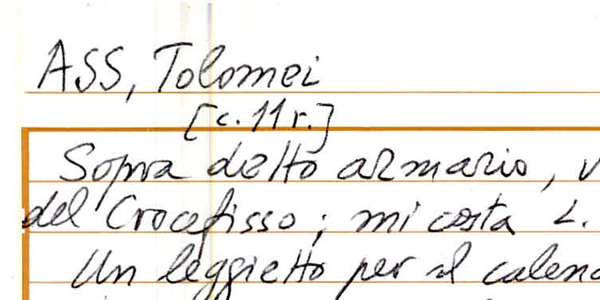 ASS, Tolomei
[c. 11 r.]
Sopra detto armario,
del Crocefisso; mi costa L.
Un leggietto per il